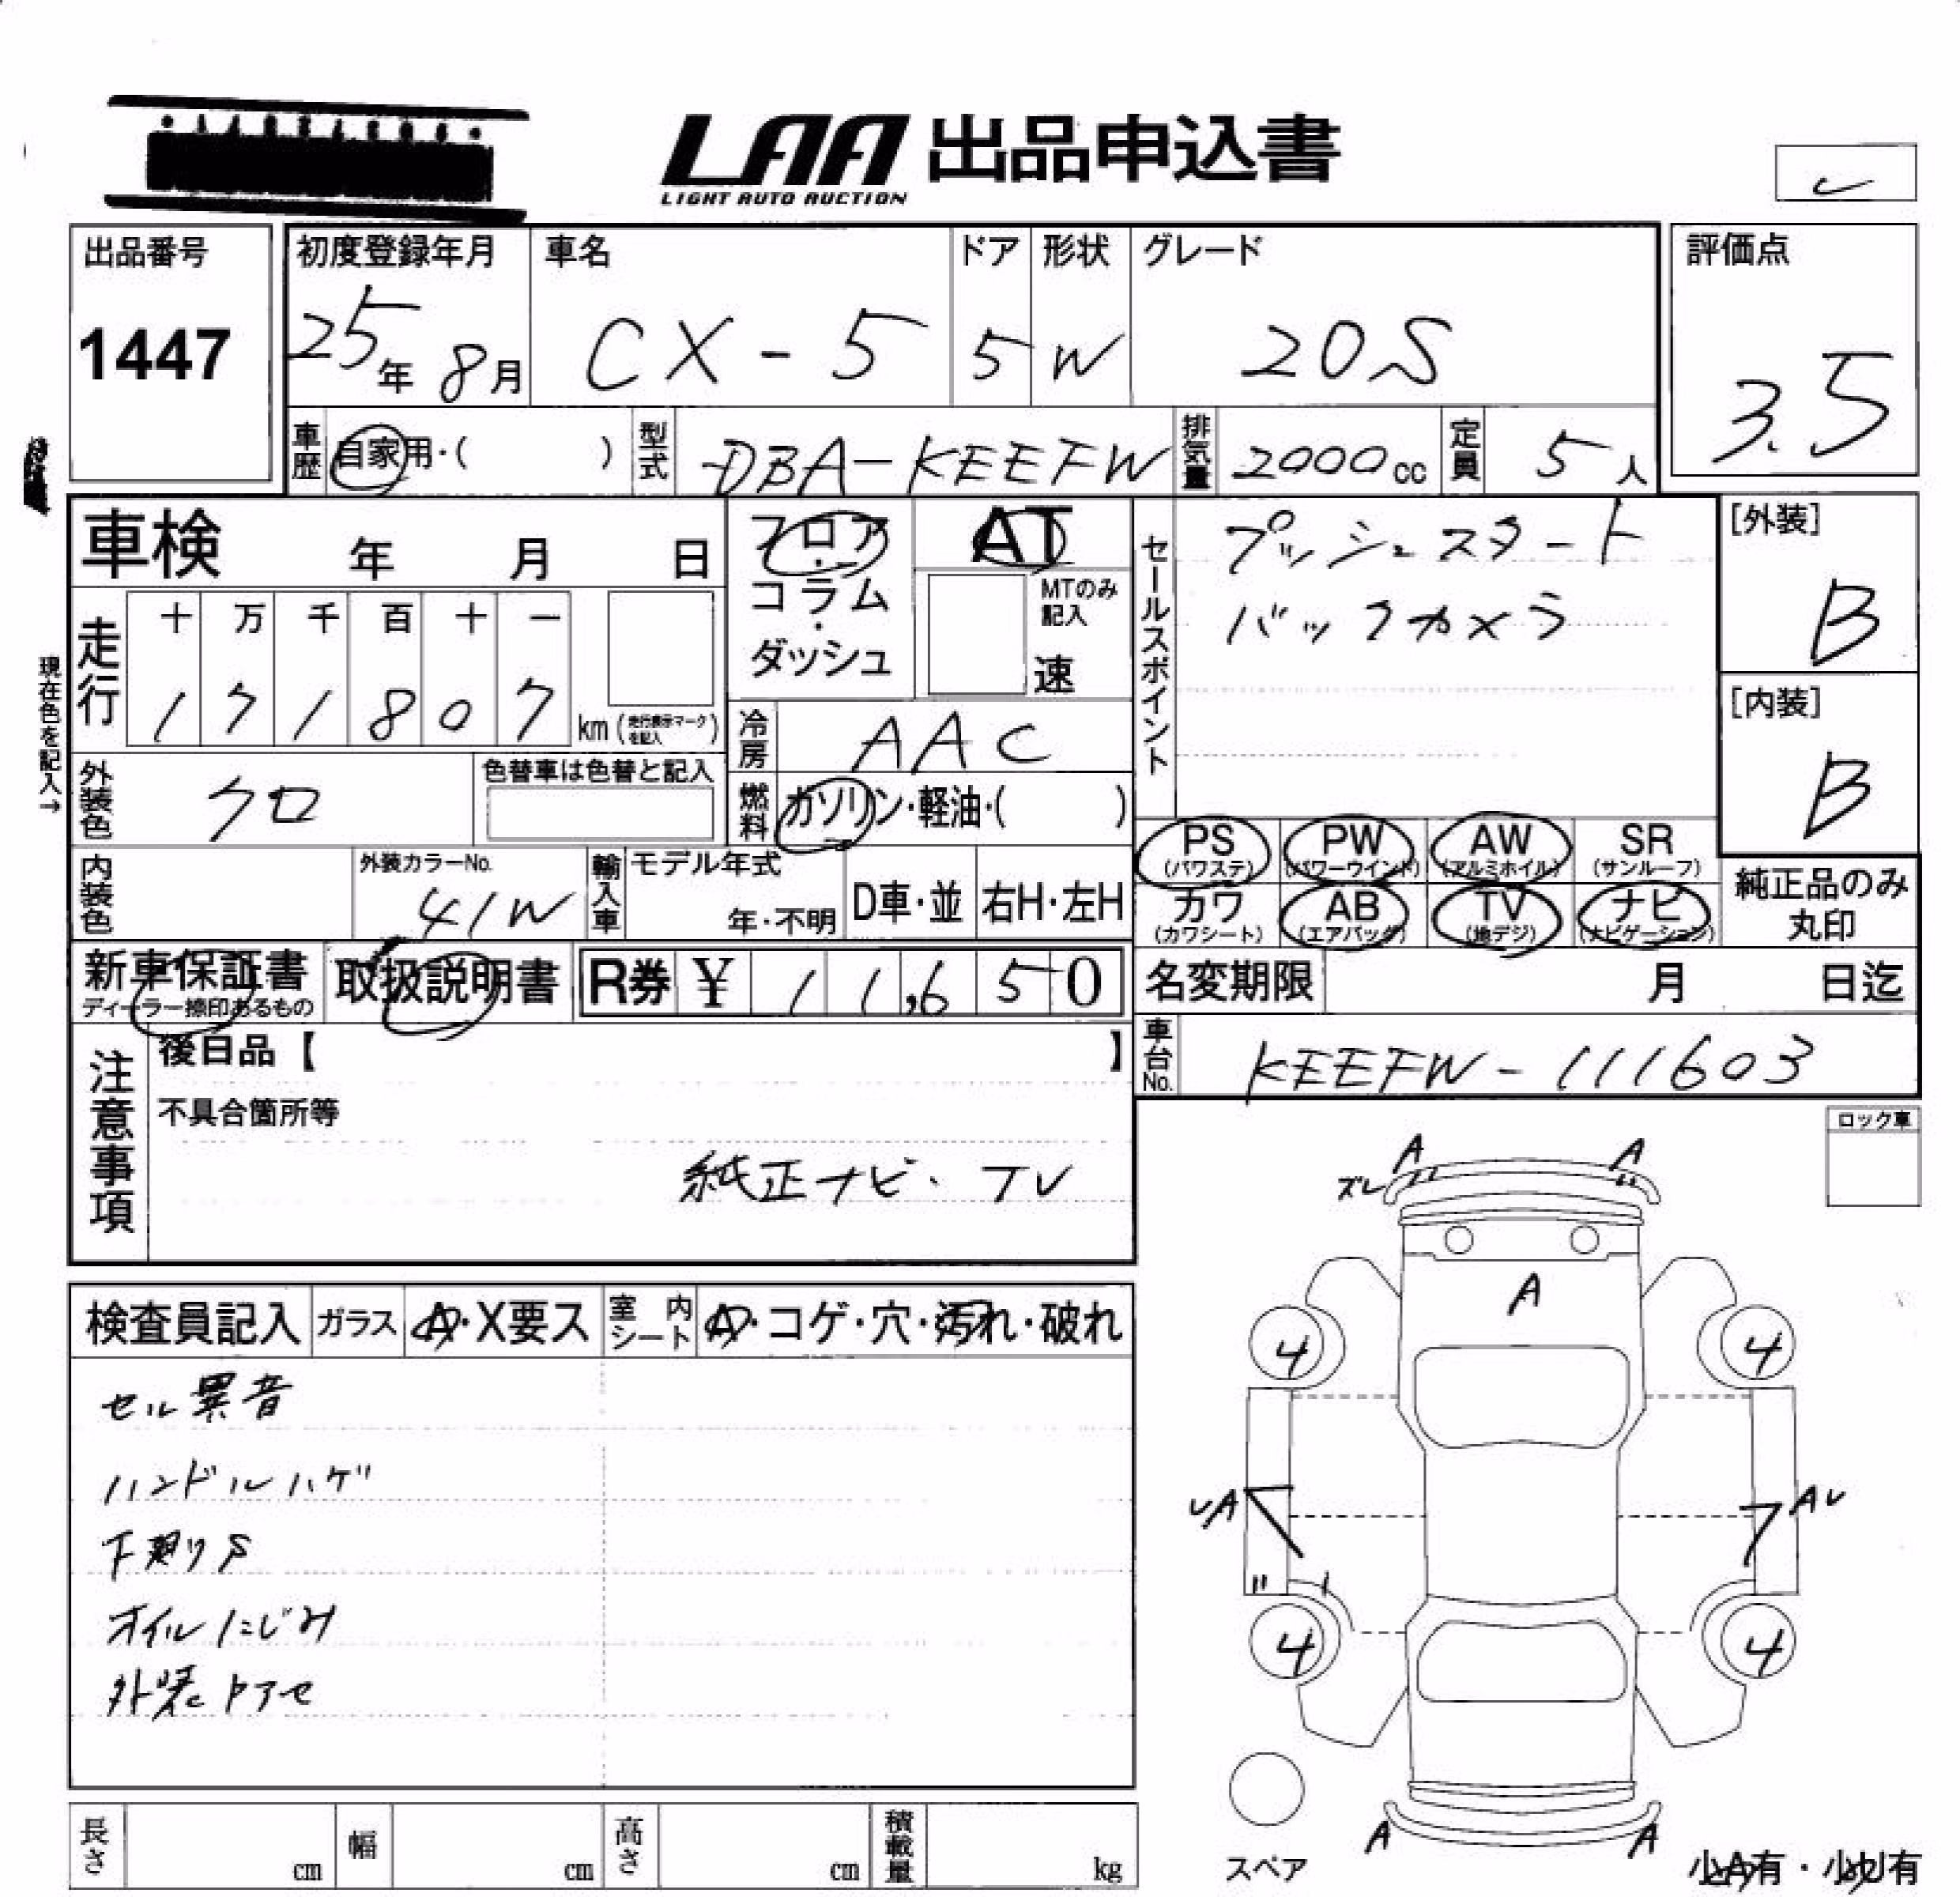 LAA 出品申込書
LIGHT AUTO AUCTION
レ
出品番号
1447
初度登録年月
25年 8月
車名
CX-5
ドア
5
形状
W
グレード
20S
評価点
3.5
車歴 自家用・( )
型式 DBA-KEEFW
排気量 2000cc
定員 5人
車検 年 月 日
フロア・コラム・ダッシュ
AT
MTのみ記入
速
セールスポイント
プッシュスタート
バックカメラ
[外装]
B
[内装]
B
走行
十 万 千 百 十 一
1 7 1 8 0 7 km (走行表示マークを記入)
現在色を記入→
冷房 AAC
外装色 クロ
色替車は色替と記入
燃料 ガソリン・軽油・( )
PS (パワステ)
PW (パワーウインド)
AW (アルミホイル)
SR (サンルーフ)
カワ (カワシート)
AB (エアバッグ)
TV (地デジ)
ナビ (ナビゲーション)
純正品のみ丸印
内装色
外装カラーNo.
41W
輸入車
モデル年式
年・不明
D車・並
右H・左H
新車保証書
ディーラー捺印あるもの
取扱説明書
R券 ¥ 11,650
名変期限 月 日迄
車台No. KEEFW-111603
注意事項
後日品【 】
不具合箇所等
純正ナビ・TV
ロック車
検査員記入
ガラス A・X要ス
室内シート A・コゲ・穴・汚れ・破れ
セル異音
ハンドルハゲ
下廻りS
オイルにじみ
外装アセ
A
A
ズレ
A
4
4
レA
Aレ
4
4
A
A
スペア
小A有・小U有
長さ cm
幅 cm
高さ cm
積載量 kg